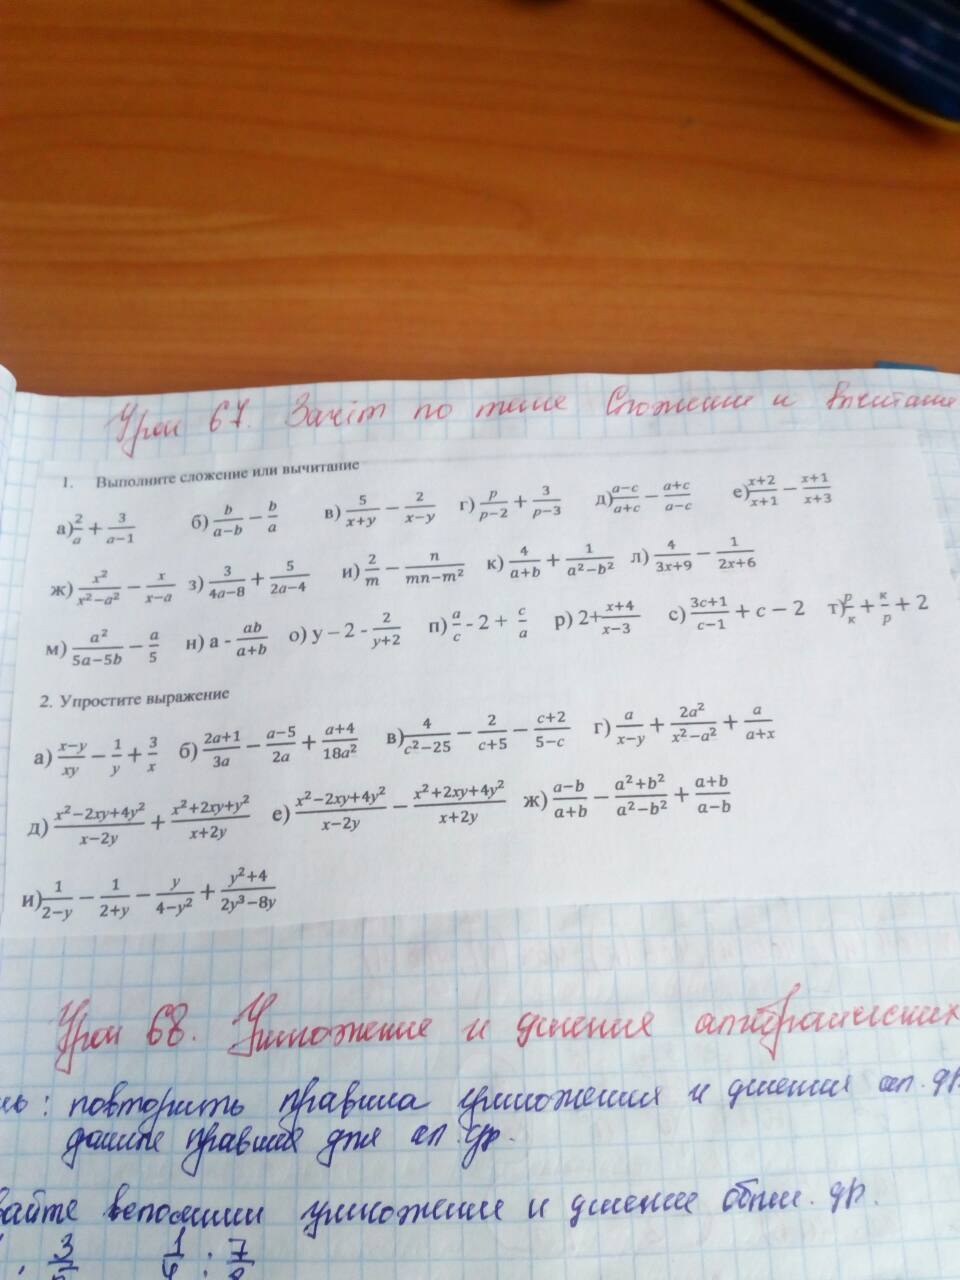 Урок 67. Зачёт по теме Сложение и вычитание
1. Выполните сложение или вычитание
а) 2/a + 3/(a−1) б) b/(a−b) − b/a в) 5/(x+y) − 2/(x−y) г) p/(p−2) + 3/(p−3) д) (a−c)/(a+c) − (a+c)/(a−c) е) (x+2)/(x+1) − (x+1)/(x+3)
ж) x²/(x²−a²) − x/(x−a) з) 3/(4a−8) + 5/(2a−4) и) 2/m − n/(mn−m²) к) 4/(a+b) + 1/(a²−b²) л) 4/(3x+9) − 1/(2x+6)
м) a²/(5a−5b) − a/5 н) a - ab/(a+b) о) y – 2 - 2/(y+2) п) a/c - 2 + c/a р) 2+ (x+4)/(x−3) с) (3c+1)/(c−1) + c − 2 т) p/к + к/p + 2
2. Упростите выражение
а) (x−y)/xy − 1/y + 3/x б) (2a+1)/3a − (a−5)/2a + (a+4)/18a² в) 4/(c²−25) − 2/(c+5) − (c+2)/(5−c) г) a/(x−y) + 2a²/(x²−a²) + a/(a+x)
д) (x²−2xy+4y²)/(x−2y) + (x²+2xy+y²)/(x+2y) е) (x²−2xy+4y²)/(x−2y) − (x²+2xy+4y²)/(x+2y) ж) (a−b)/(a+b) − (a²+b²)/(a²−b²) + (a+b)/(a−b)
и) 1/(2−y) − 1/(2+y) − y/(4−y²) + (y²+4)/(2y³−8y)
Урок 68. Умножение и деление алгебраических
ль: повторить правила умножения и деления ал. др.
правила для ал. др.
вайте вспомним умножение и деление обык. др.
· 3 1 : 7